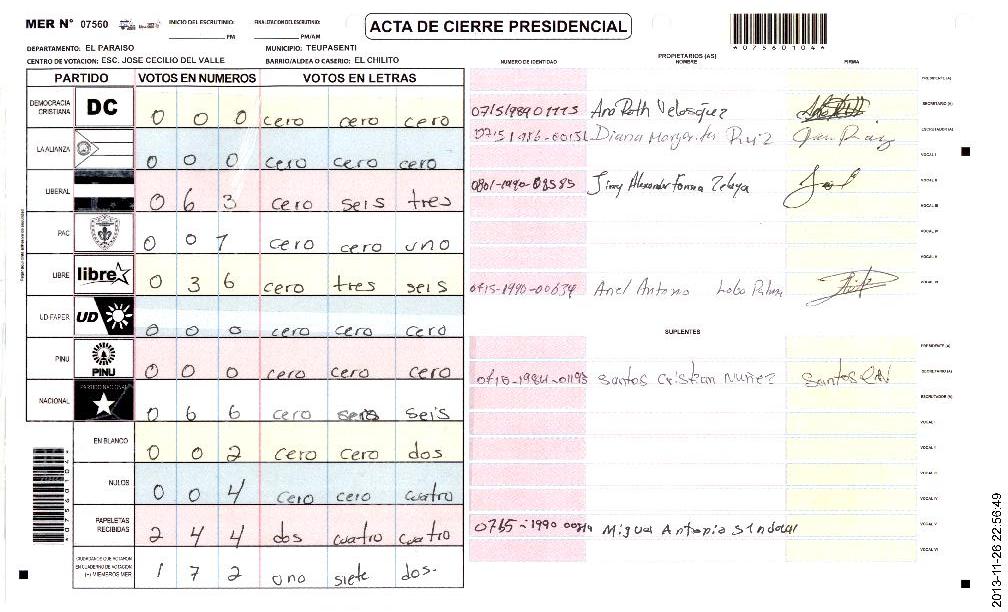 MER Nº 07560 INICIO DEL ESCRUTINIO: PM FINALIZACION DEL ESCRUTINIO: PM/AM
ACTA DE CIERRE PRESIDENCIAL
4075601044
DEPARTAMENTO: EL PARAISO MUNICIPIO: TEUPASENTI
CENTRO DE VOTACION: ESC. JOSE CECILIO DEL VALLE BARRIO/ALDEA O CASERIO: EL CHILITO
PARTIDO VOTOS EN NUMEROS VOTOS EN LETRAS
DEMOCRACIA CRISTIANA DC 0 0 0 cero cero cero
LA ALIANZA 0 0 0 cero cero cero
LIBERAL 0 6 3 cero seis tres
PAC 0 0 1 cero cero uno
LIBRE libre 0 3 6 cero tres seis
UD FAPER UD 0 0 0 cero cero cero
PINU PINU 0 0 0 cero cero cero
NACIONAL PARTIDO NACIONAL 0 6 6 cero seis seis
EN BLANCO 0 0 2 cero cero dos
NULOS 0 0 4 cero cero cuatro
PAPELETAS RECIBIDAS 2 4 4 dos cuatro cuatro
CIUDADANOS QUE VOTARON EN CUADERNO DE VOTACION (+) MIEMBROS MER 1 7 2 uno siete dos.
4075601044
PROPIETARIOS (AS)
NUMERO DE IDENTIDAD NOMBRE FIRMA
PRESIDENTE (A)
Ana Ruth Velasquez SECRETARIO (A)
Diana Margarita Ruiz ESCRUTADOR (A)
VOCAL I
0801-1990-08585 Jimy Alexander Zelaya VOCAL II
VOCAL III
VOCAL IV
VOCAL V
Ariel Antonio Lobo VOCAL VI
SUPLENTES
PRESIDENTE (A)
0715-1984-01193 Santos Cristian Nuñez Santos SECRETARIO (A)
ESCRUTADOR (A)
VOCAL I
VOCAL II
VOCAL III
VOCAL IV
Miguel Antonio Sindoval VOCAL V
VOCAL VI
2013-11-26 22:56:49